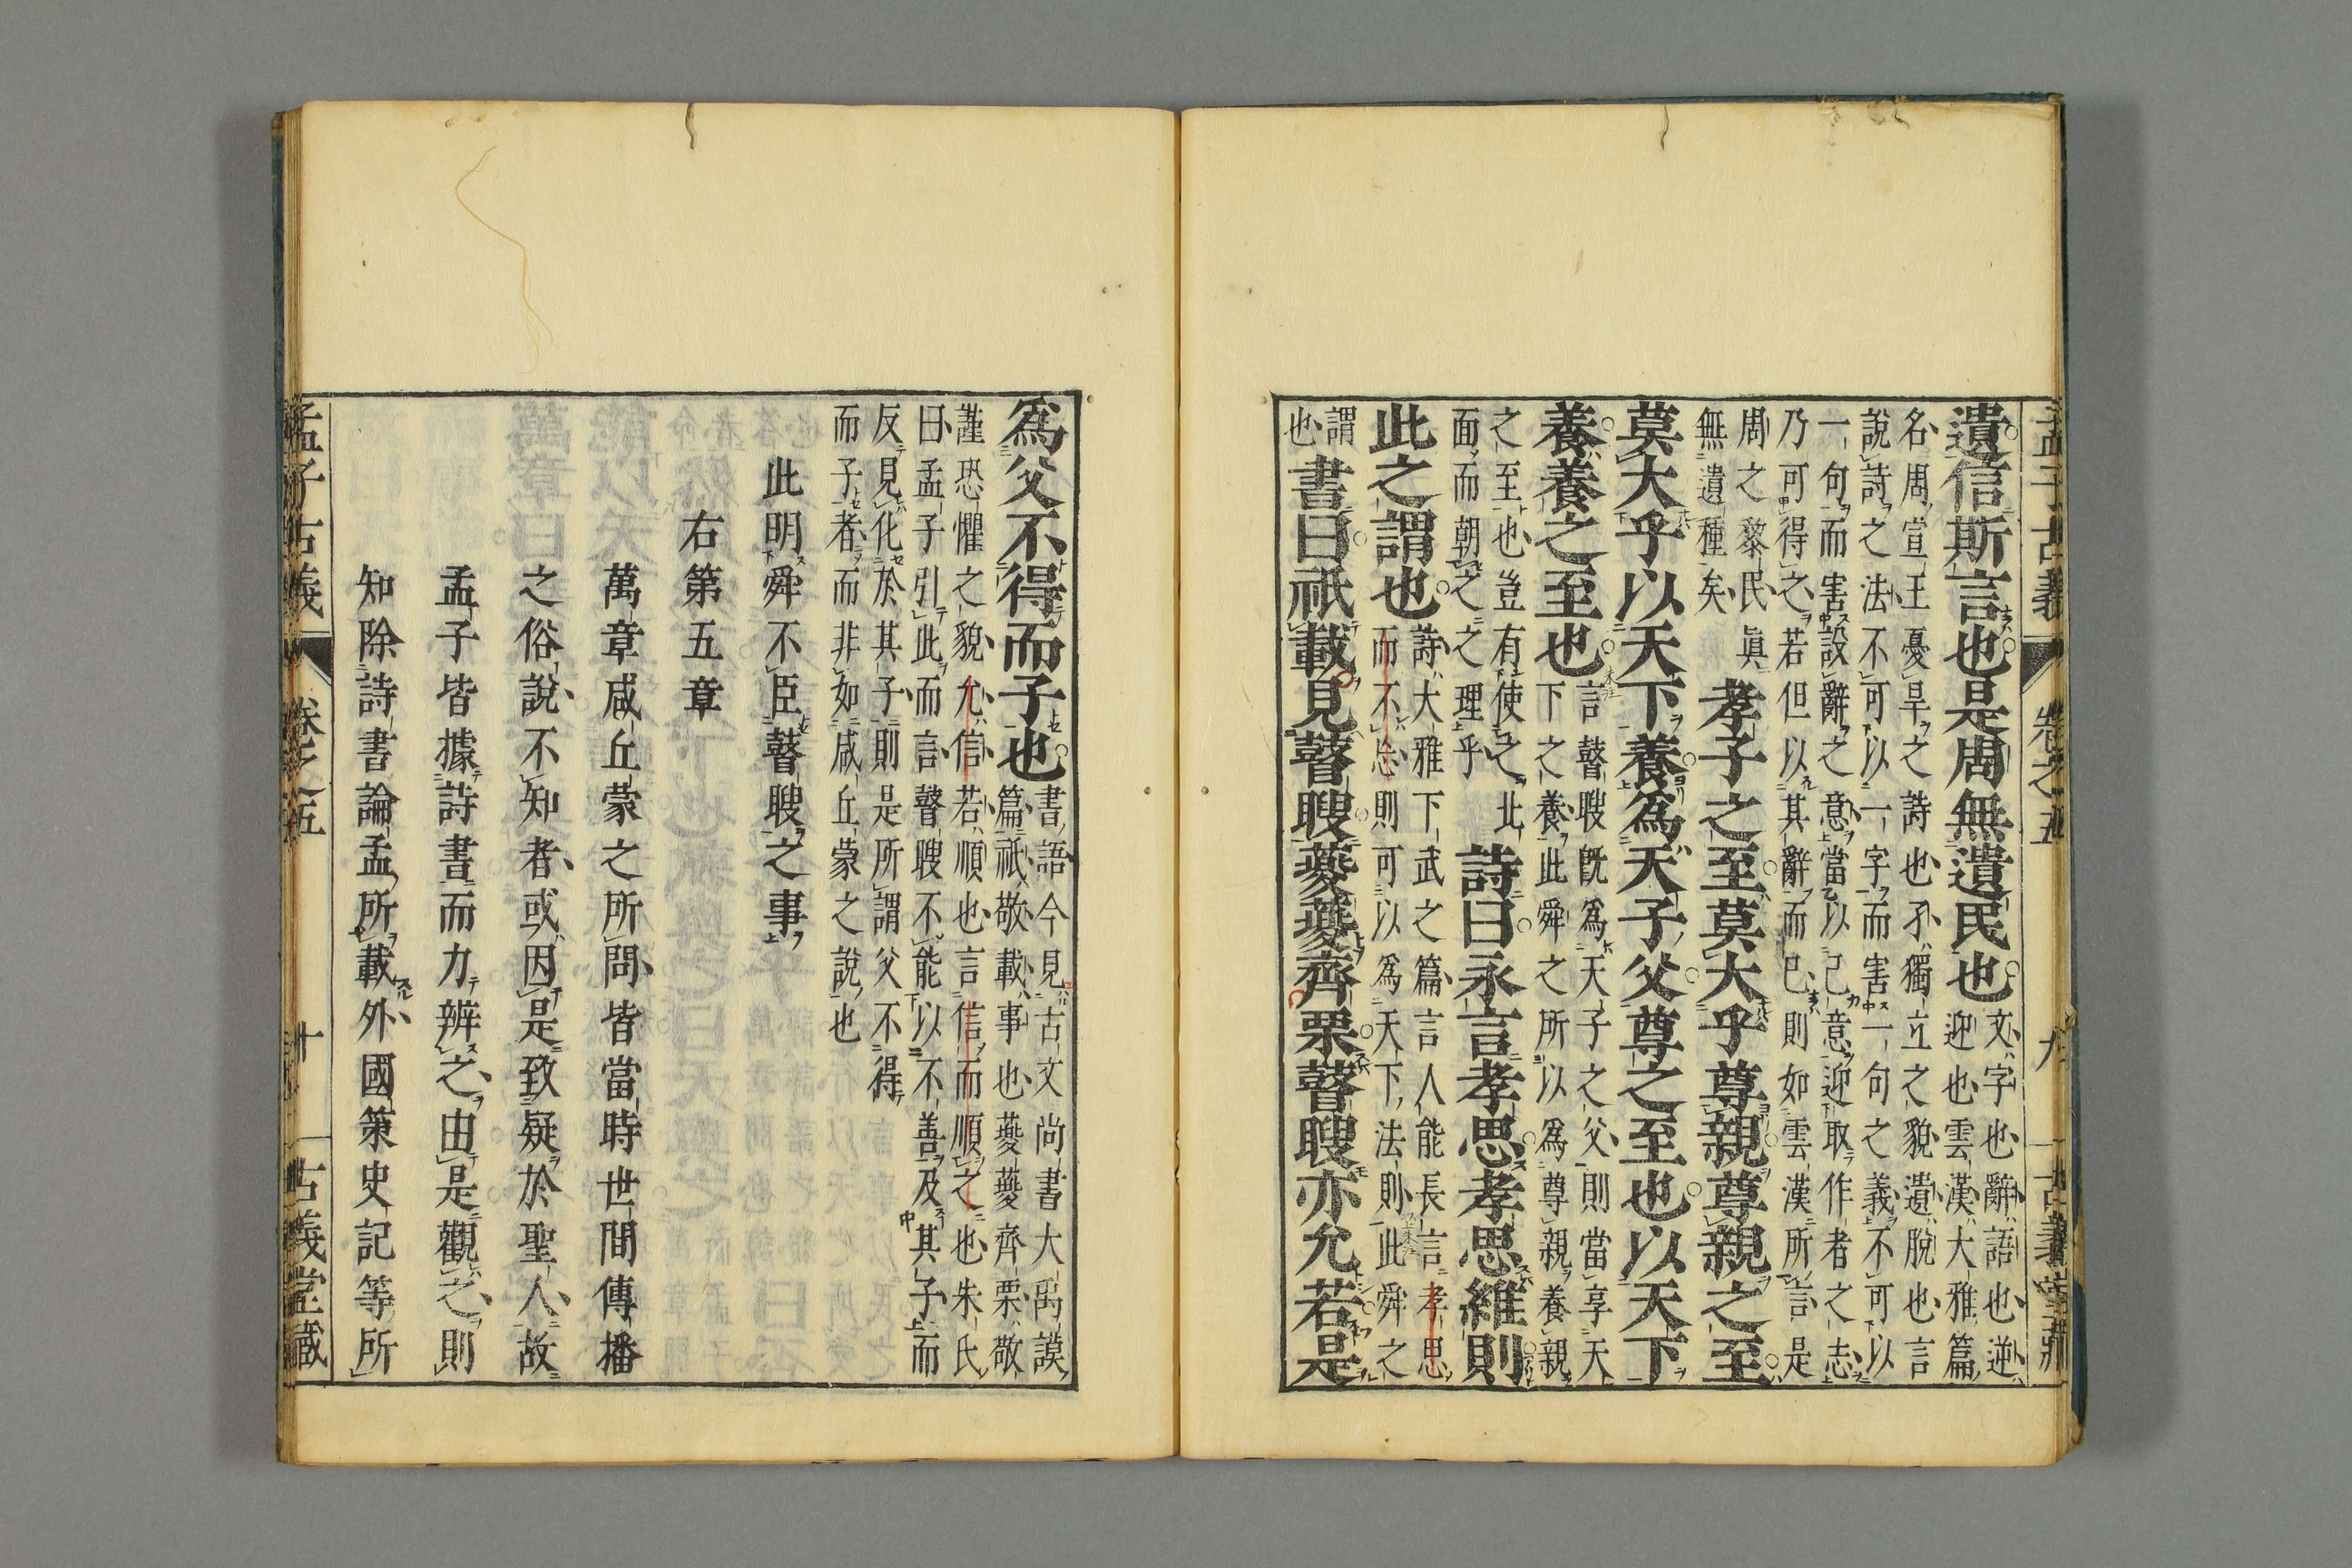 孟子古義 卷之五 九 古義堂藏
遺信斯言也是周無遺民也文字也辭語也逆
迎也雲漢大雅篇
名周宣王憂旱之詩也孑獨立之貌遺脫也言
說詩之法不可以一字而害一句之義不可以
一句而害設辭之意當以己意迎取作者之志
乃可得之若但以其辭而已則如雲漢所言是
周之黎民眞
無遺種矣
孝子之至莫大乎尊親尊親之至
莫大乎以天下養爲天子父尊之至也以天下
養養之至也言瞽瞍既爲天子之父則當享天
下之養此舜之所以爲尊親養親
之至也豈有使之北
面而朝之之理乎
詩曰永言孝思孝思維則
此之謂也詩大雅下武之篇言人能長言孝思
而不忘則可以爲天下法則此舜之
謂
也
書曰祇載見瞽瞍夔夔齊栗瞽瞍亦允若是
爲父不得而子也書語今見古文尚書大禹謨
篇祇敬載事也夔夔齊栗敬
謹恐懼之貌允信若順也言信而順之也朱氏
曰孟子引此而言瞽瞍不能以不善及其子而
反見化於其子則是所謂父不得
而子者而非如咸丘蒙之說也
此明舜不臣瞽瞍之事
右第五章
萬章咸丘蒙之所問皆當時世間傳播
之俗說不知者或因是致疑於聖人故
孟子皆據詩書而力辨之由是觀之則
知除詩書論孟所載外國策史記等所
孟子古義 卷之五 十 古義堂藏